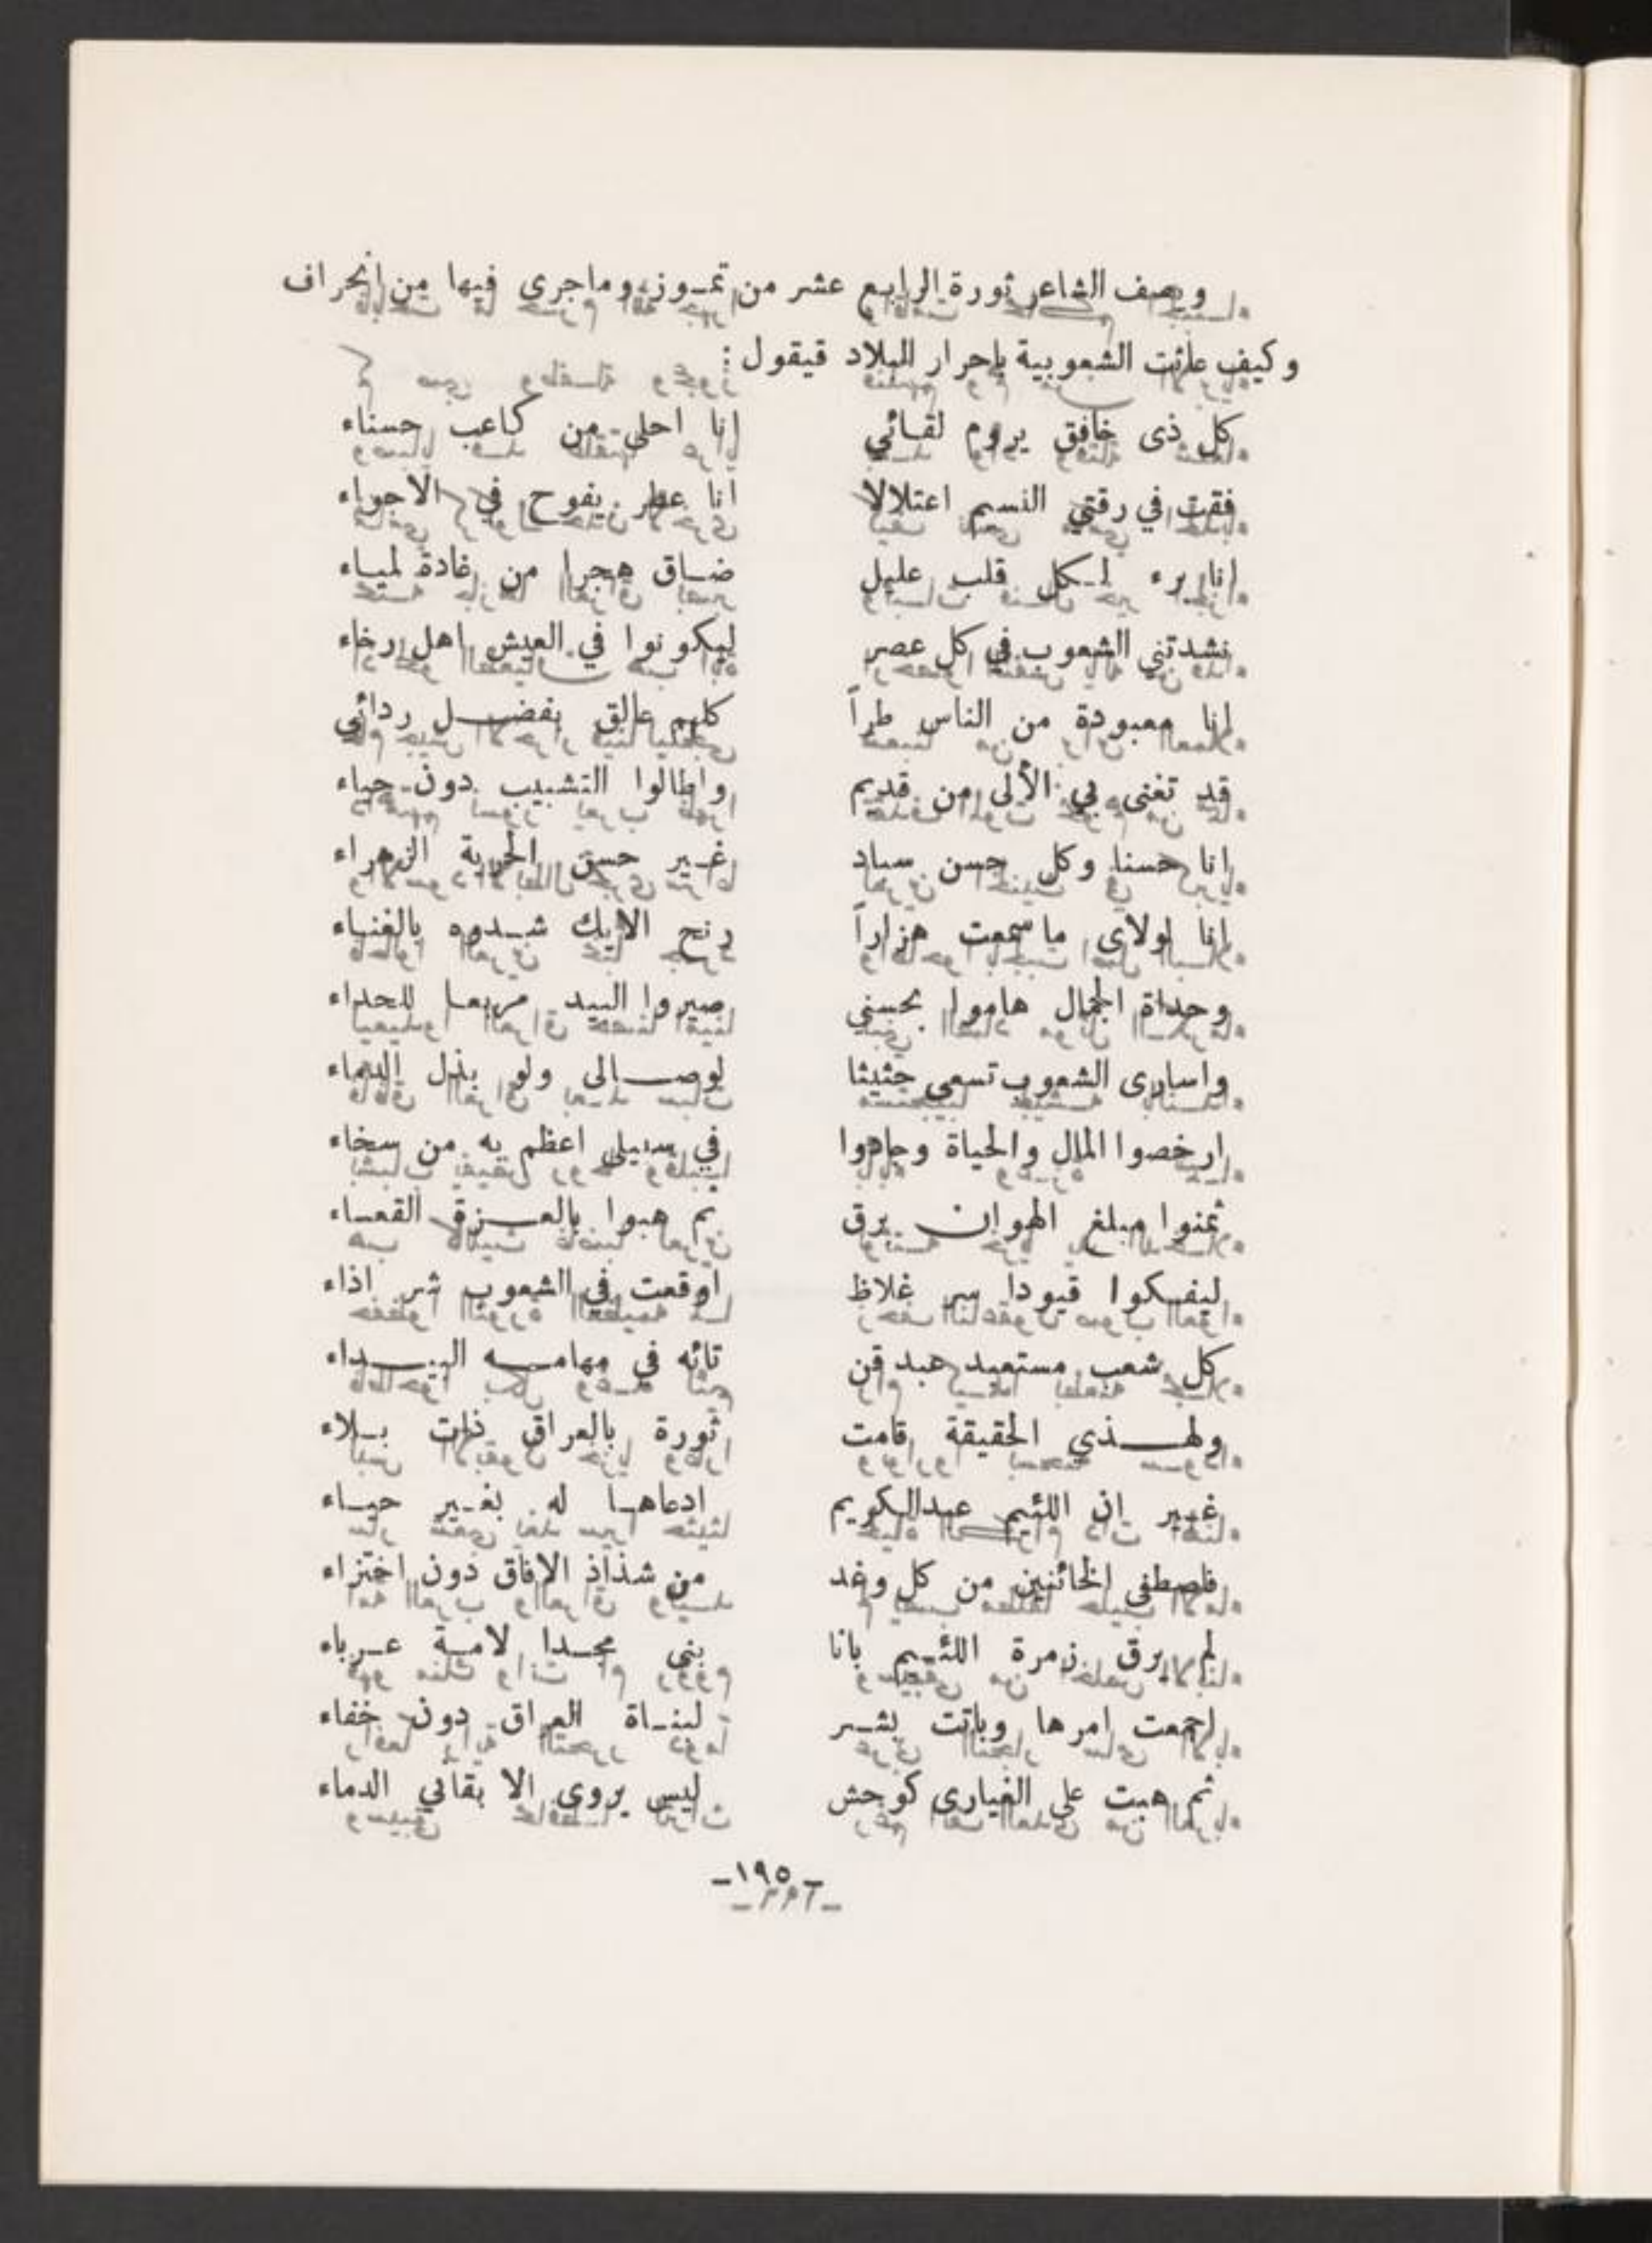 ويصف الشاعر ثورة الرابع عشر من تموز وماجرى فيها من انحراف
وكيف عاثت الشعوبية بإحرار البلاد فيقول :
كل ذى خافق يروم لقائي انا احلى من كاعب حسناء
فقت في رقتي النسيم اعتلالا انا عطر يفوح في الاجواء
انا برء لكل قلب عليل ضاق هجرا من غادة لمياء
نشدتني الشعوب في كل عصر ليكونوا في العيش اهل رخاء
انا معبودة من الناس طراً كلهم عالق بفضل ردائي
قد تغنى بي الألى من قديم واطالوا التشبيب دون حياء
انا حسنا وكل حسن سباد غير حسن الحرية الزهراء
انا لولاى ما سمعت هزاراً رنح الايك شدوه بالغناء
وحداة الجمال هاموا بحسني صيروا البيد مربعا للحداء
واسارى الشعوب تسعى حثيثا لوصالى ولو بذل الدماء
ارخصوا المال والحياة وجادوا في سبيلي اعظم به من سخاء
ثمنوا مبلغ الهوان برق ثم هبوا بالعزة القعساء
ليفكوا قيودا سر غلاظ اوقعت في الشعوب شر اذاء
كل شعب مستعبد عبد قن تائه في مهامه البيداء
ولهذي الحقيقة قامت ثورة بالعراق ذات بلاء
غير ان اللئيم عبدالكريم ادعاها له بغير حياء
فاصطفى الخائنين من كل وغد من شذاذ الافاق دون اختزاء
لم يرق زمرة اللئيم بانا بنى مجدا لامة عرباء
اجمعت امرها وباتت بشر لبناة العراق دون خفاء
ثم هبت على الغيارى كوحش ليس يروى الا بقاني الدماء
-١٩٥-